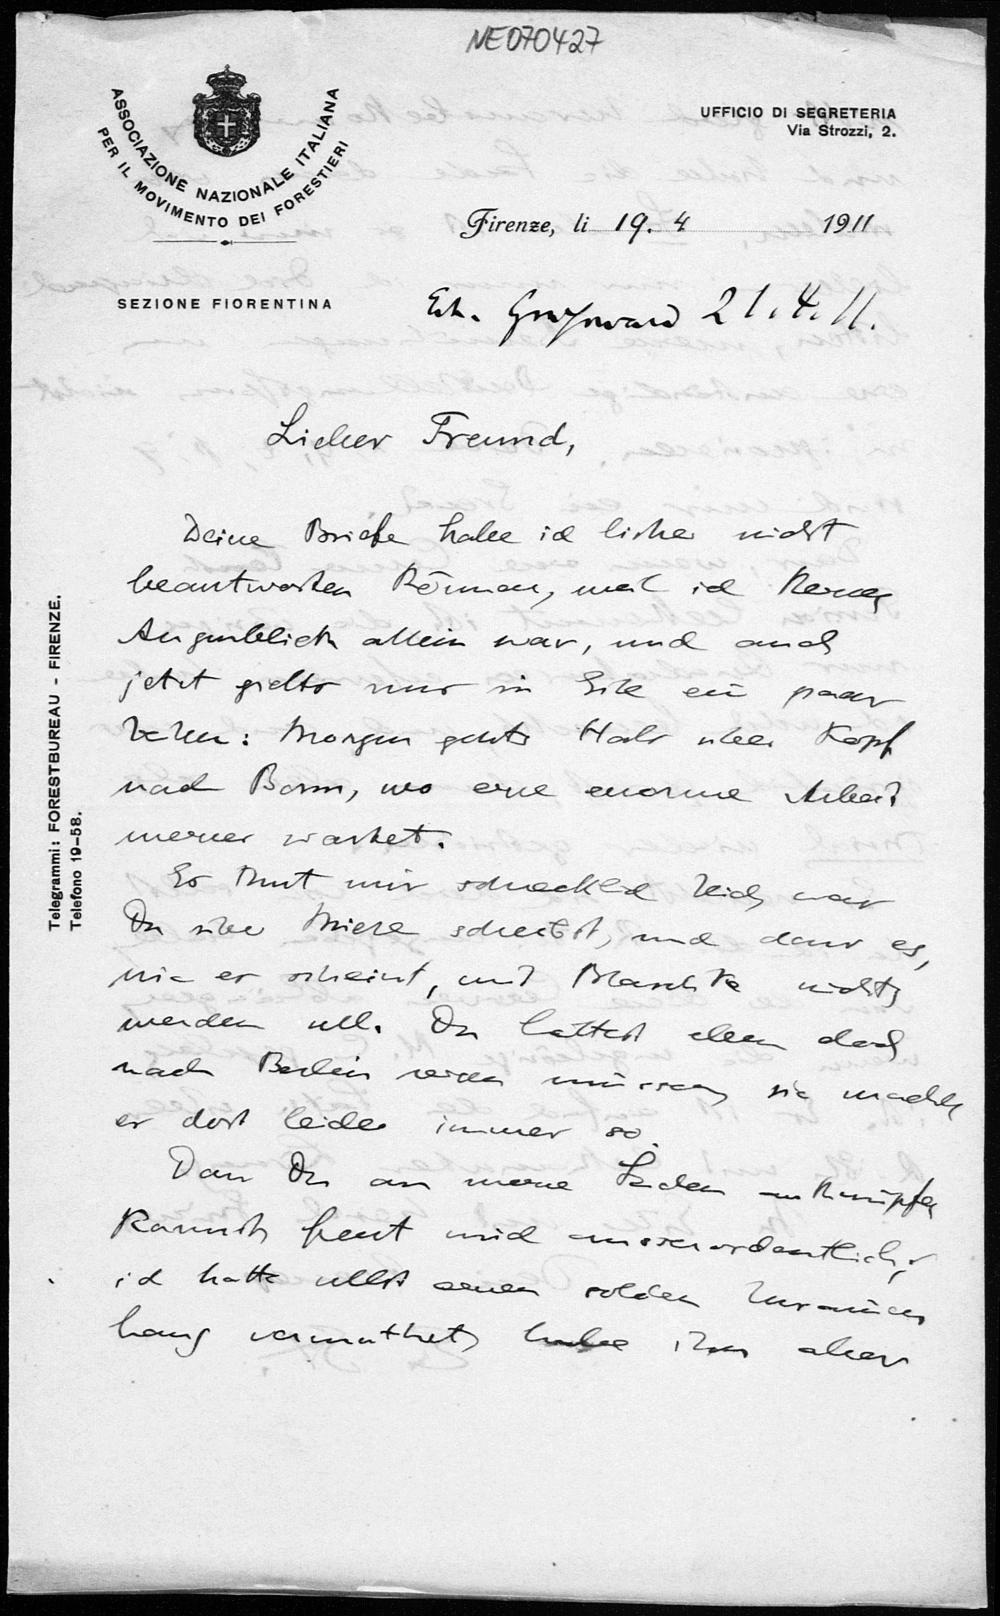 NE070427
ASSOCIAZIONE NAZIONALE ITALIANA
PER IL MOVIMENTO DEI FORESTIERI
SEZIONE FIORENTINA
UFFICIO DI SEGRETERIA
Via Strozzi, 2.
Firenze, li 19. 4 1911
Erh. Greifswald 21.4.11.
Telegrammi: FORESTBUREAU - FIRENZE.
Telefono 19-58.
Lieber Freund,
Deine Briefe habe ich bisher nicht
beantworten können, weil ich keinen
Augenblick allein war, und auch
jetzt giebts nur in Eile ein paar
Zeilen: Morgen gehts Hals über Kopf
nach Bonn, wo eine enorme Arbeit
meiner wartet.
Es thut mir schrecklich leid, was
Du über Miese schreibst, und dass es,
wie es scheint, mit Blaschke nichts
werden will. Du hättest eben doch
nach Berlin reisen müssen, sie machen
es dort leider immer so.
Dass Du an meine Sachen anknüpfen
kannst, freut mich ausserordentlich,
ich hatte selbst einen solchen Zusammen
hang vermuthet, habe ihn aber